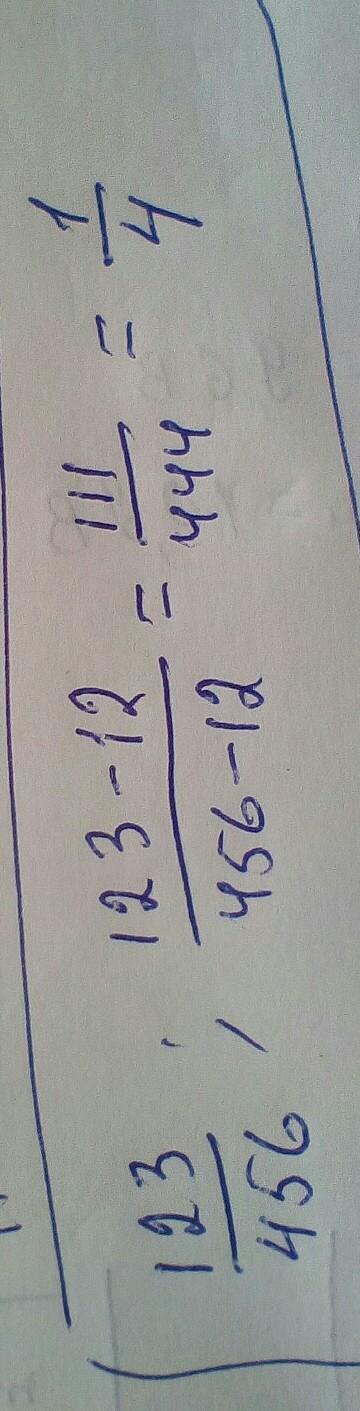 123/456 ; (123-12)/(456-12) = 111/444 = 1/4